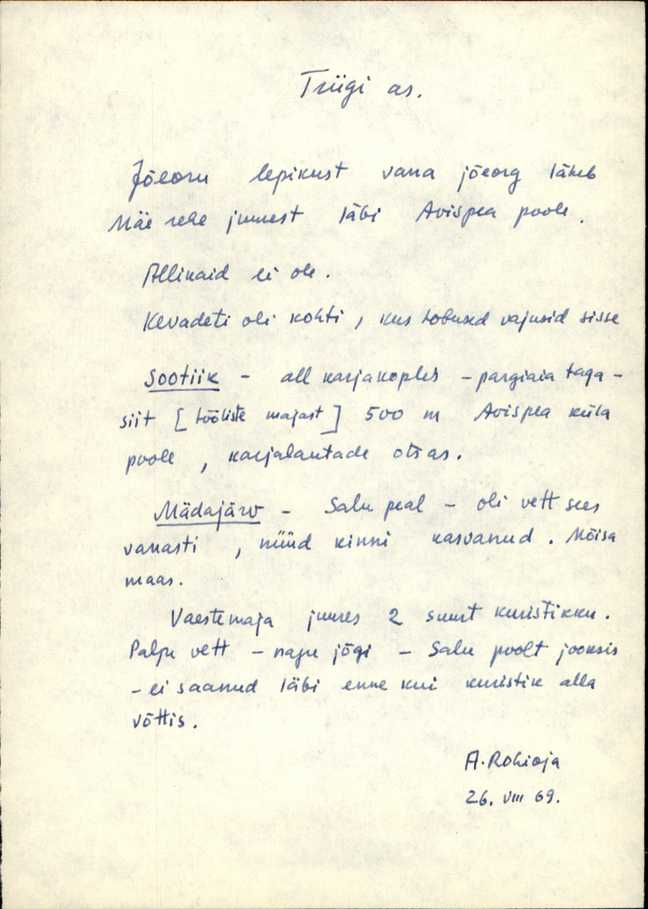 Triigi as.
Jõeoru lepikust vana jõeorg läheb
Mäe rehe juurest läbi Avispea poole.
Allikaid ei ole.
Kevadeti oli kohti, kus hobused vajusid sisse
Sootiik - all karjakoplis - pargiaia taga -
siit [tööliste majast] 500 m Avispea küla
poole, karjalautade otsas.
Mädajärv - Salu peal - oli vett sees
vanasti, nüüd kinni kasvanud. Mõisa
maas.
Vaestemaja juures 2 suurt kuristikku.
Palju vett - nagu jõgi - Salu poolt jooksis
- ei saanud läbi enne kui kuristik alla
võttis.
A. Rohioja
26. VIII 69.